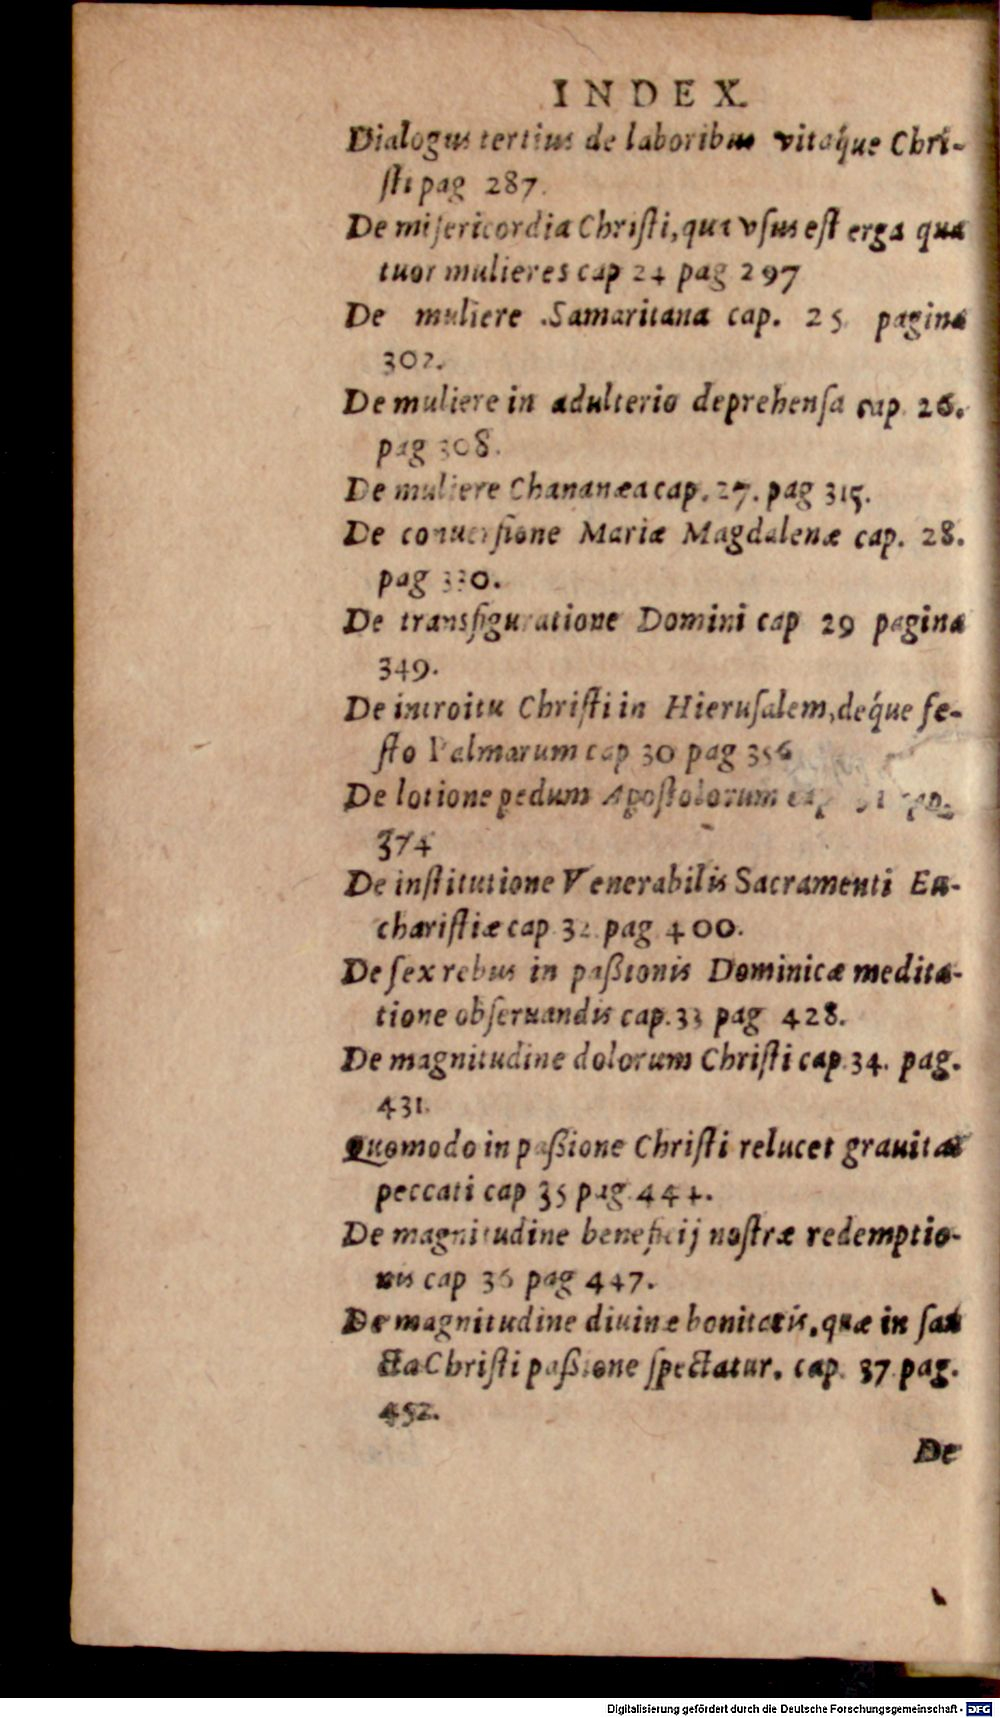 INDEX.
Dialogus tertius de laboribus vitáque Chri-
sti pag 287.
De misericordia Christi, qua vsus est erga qua
tuor mulieres cap 24 pag 297
De muliere Samaritana cap. 25. pagina
302.
De muliere in adulterio deprehensa cap. 26.
pag 308.
De muliere Chananæa cap. 27. pag 315.
De conuersione Mariæ Magdalenæ cap. 28.
pag 330.
De transfiguratione Domini cap 29 pagina
349.
De introitu Christi in Hierusalem, déque fe-
sto Palmarum cap 30 pag 356
De lotione pedum Apostolorum cap 31 pag.
374
De institutione Venerabilis Sacramenti Eu-
charistiæ cap 32. pag 400.
De sex rebus in paßionis Dominicæ medita-
tione obseruandis cap. 33 pag 428.
De magnitudine dolorum Christi cap. 34. pag.
431.
Quomodo in paßione Christi relucet grauitas
peccati cap 35 pag. 444.
De magnitudine beneficij nostræ redemptio-
nis cap 36 pag 447.
De magnitudine diuinæ bonitatis, quæ in san
cta Christi paßione spectatur. cap. 37 pag.
452.
De
Digitalisierung gefördert durch die Deutsche Forschungsgemeinschaft - DFG